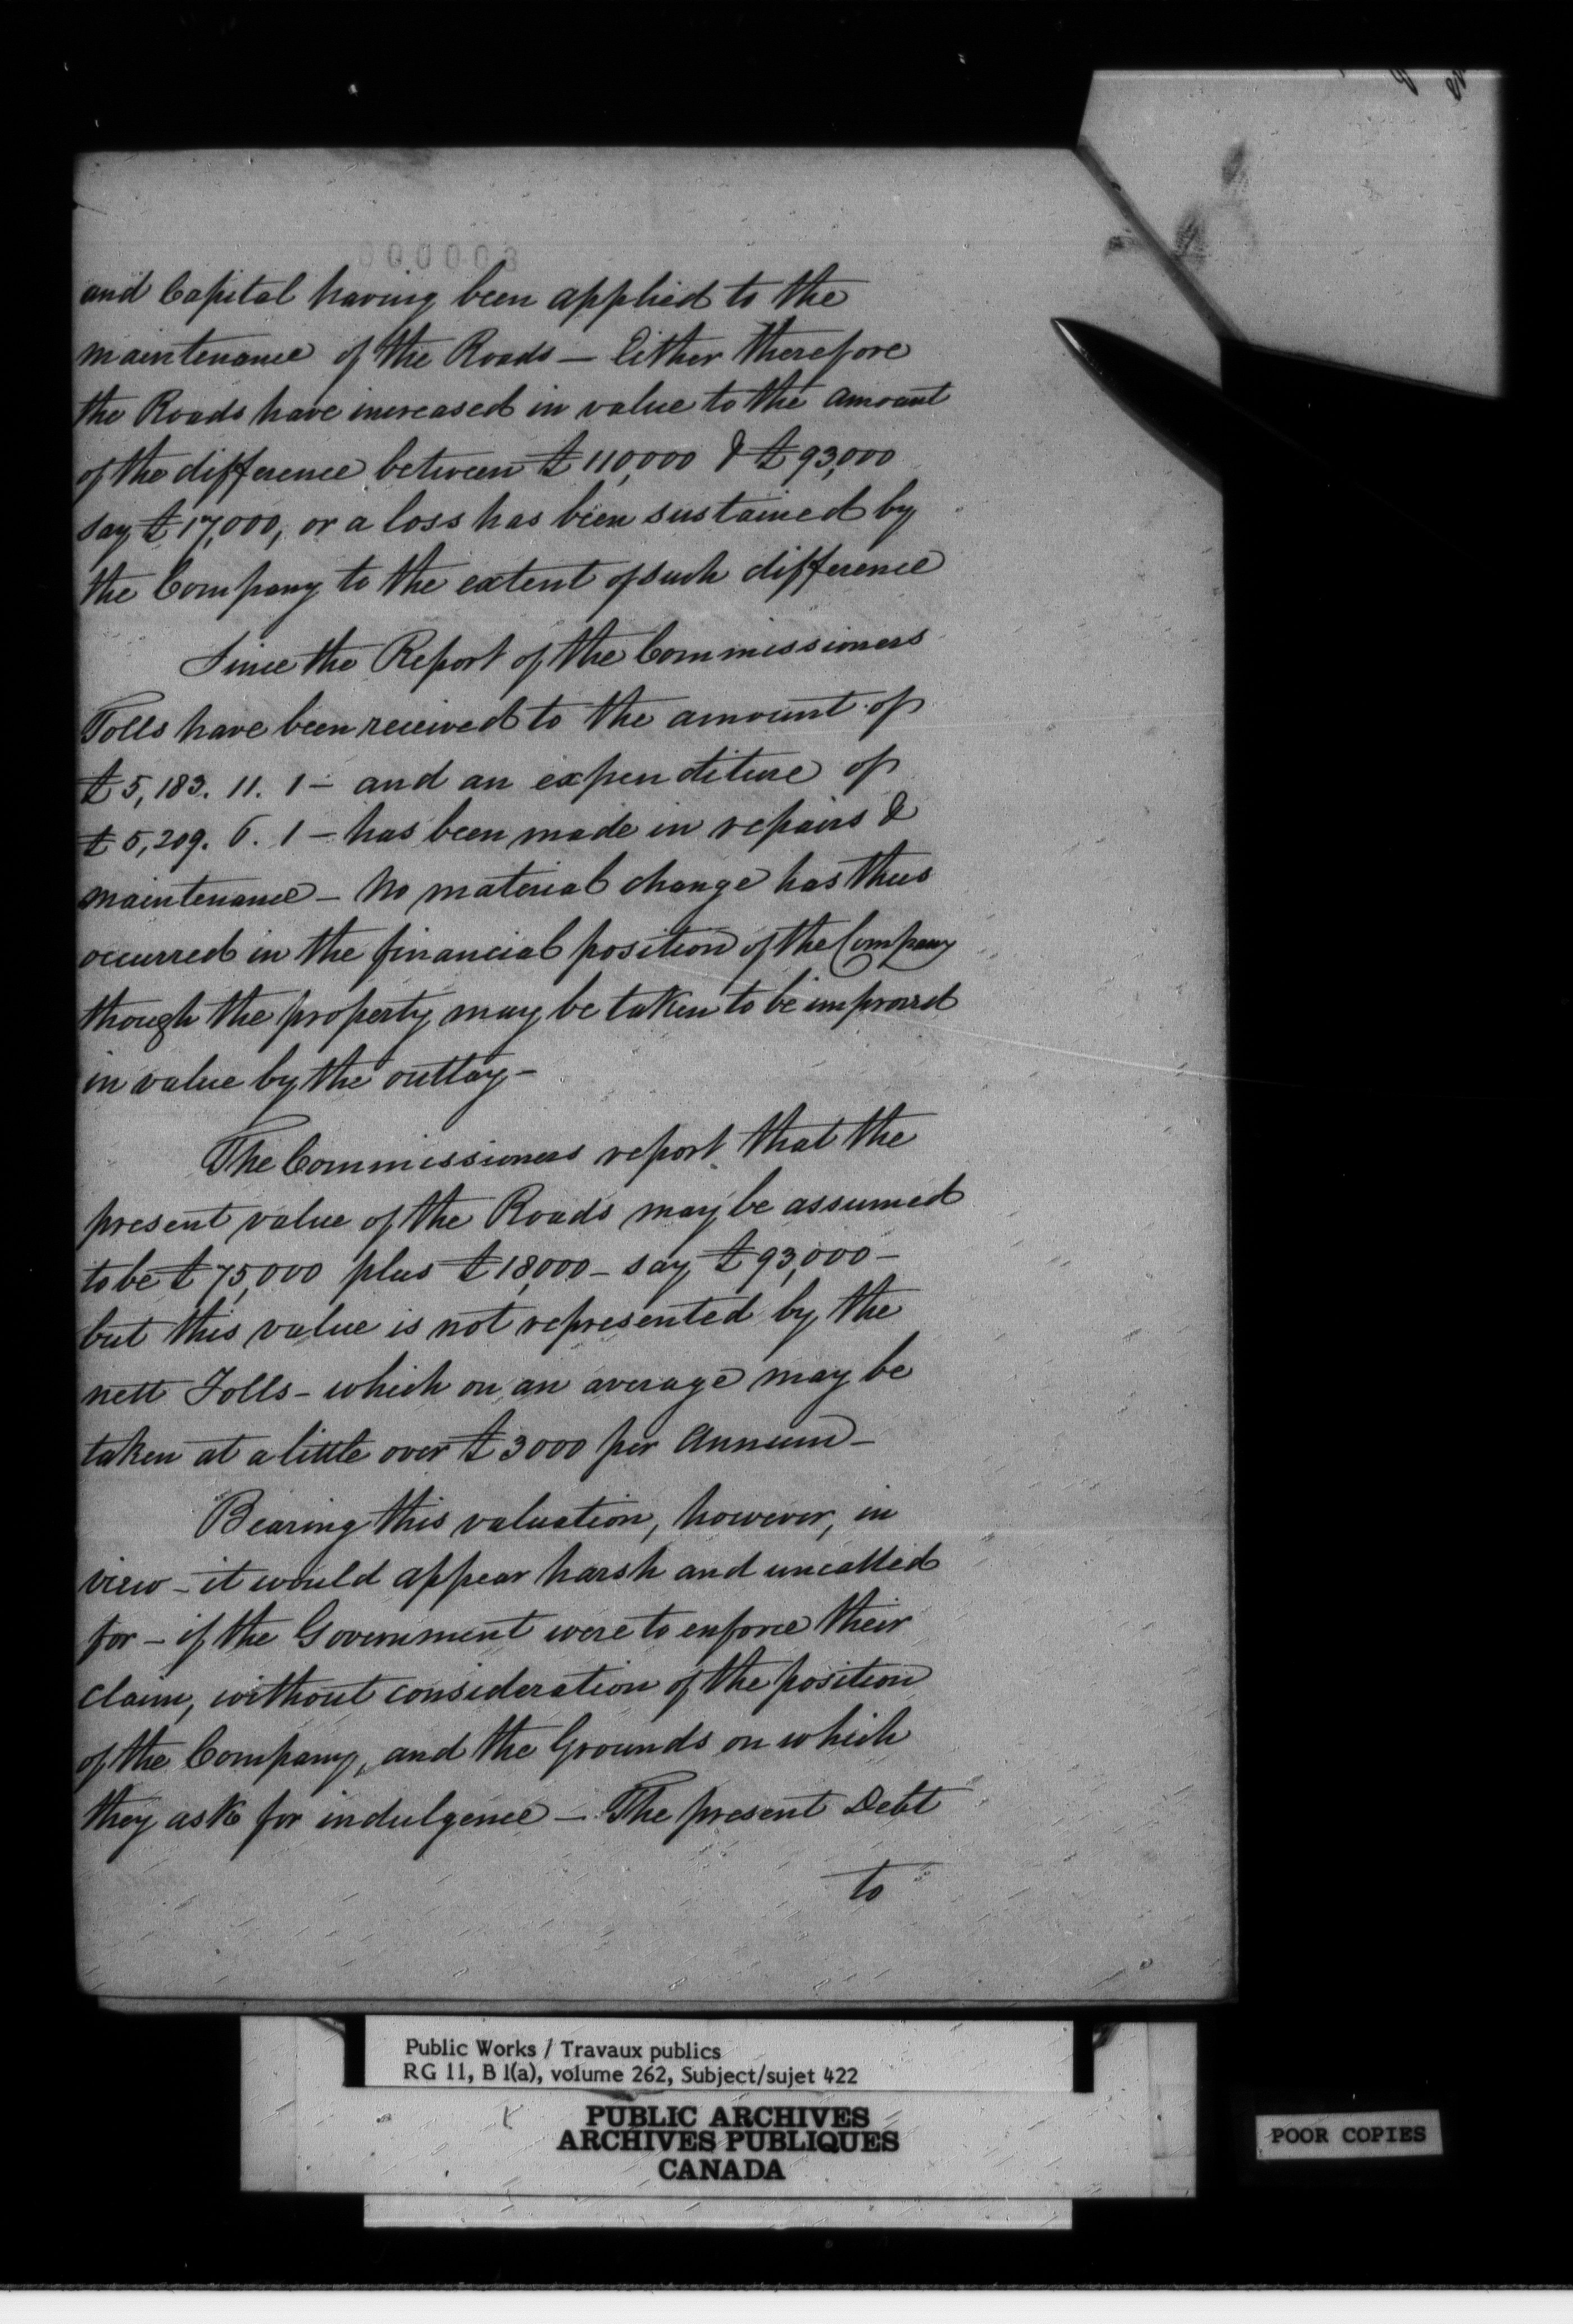 000003
and Capital having been applied to the
maintenance of the Roads — Either therefore
the Roads have increased in value to the amount
of the difference between £110,000 & £93,000
say £17,000, or a loss has been sustained by
the Company to the extent of such difference
Since the Report of the Commissioners
Tolls have been received to the amount of
£5,183. 11. 1 — and an expenditure of
£5,209. 6. 1 — has been made in repairs &
maintenance — No material change has thus
occurred in the financial position of the Company
though the property may be taken to be improved
in value by the outlay —
The Commissioners report that the
present value of the Roads may be assumed
to be £75,000 plus £18,000 — say £93,000 —
but this value is not represented by the
nett Tolls — which on an average may be
taken at a little over £3000 per Annum —
Bearing this valuation, however, in
view — it would appear harsh and uncalled
for — if the Government were to enforce their
claim, without consideration of the position
of the Company, and the Grounds on which
they ask for indulgence — The present Debt
to
Public Works / Travaux publics
RG 11, B 1(a), volume 262, Subject/sujet 422
PUBLIC ARCHIVES
ARCHIVES PUBLIQUES
CANADA
POOR COPIES